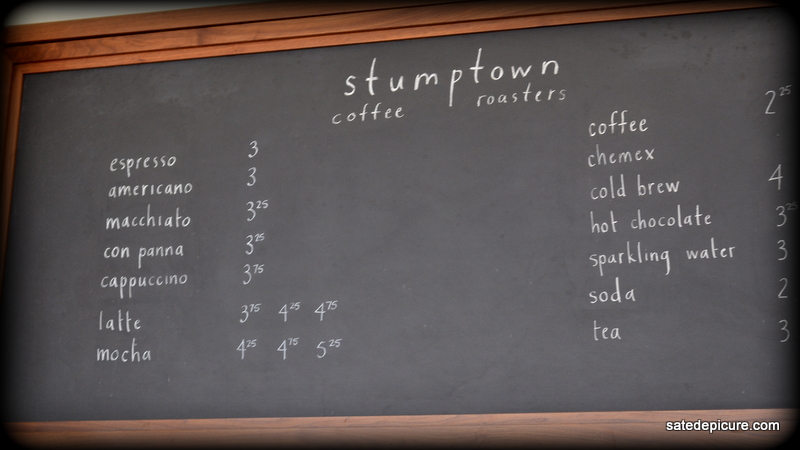 stumptown
coffee roasters
espresso 3
americano 3
macchiato 3 25
con panna 3 25
cappuccino 3 75
latte 3 75 4 25 4 75
mocha 4 25 4 75 5 25
coffee 2 25
chemex
cold brew 4
hot chocolate 3 25
sparkling water 3
soda 2
tea 3
satedepicure.com